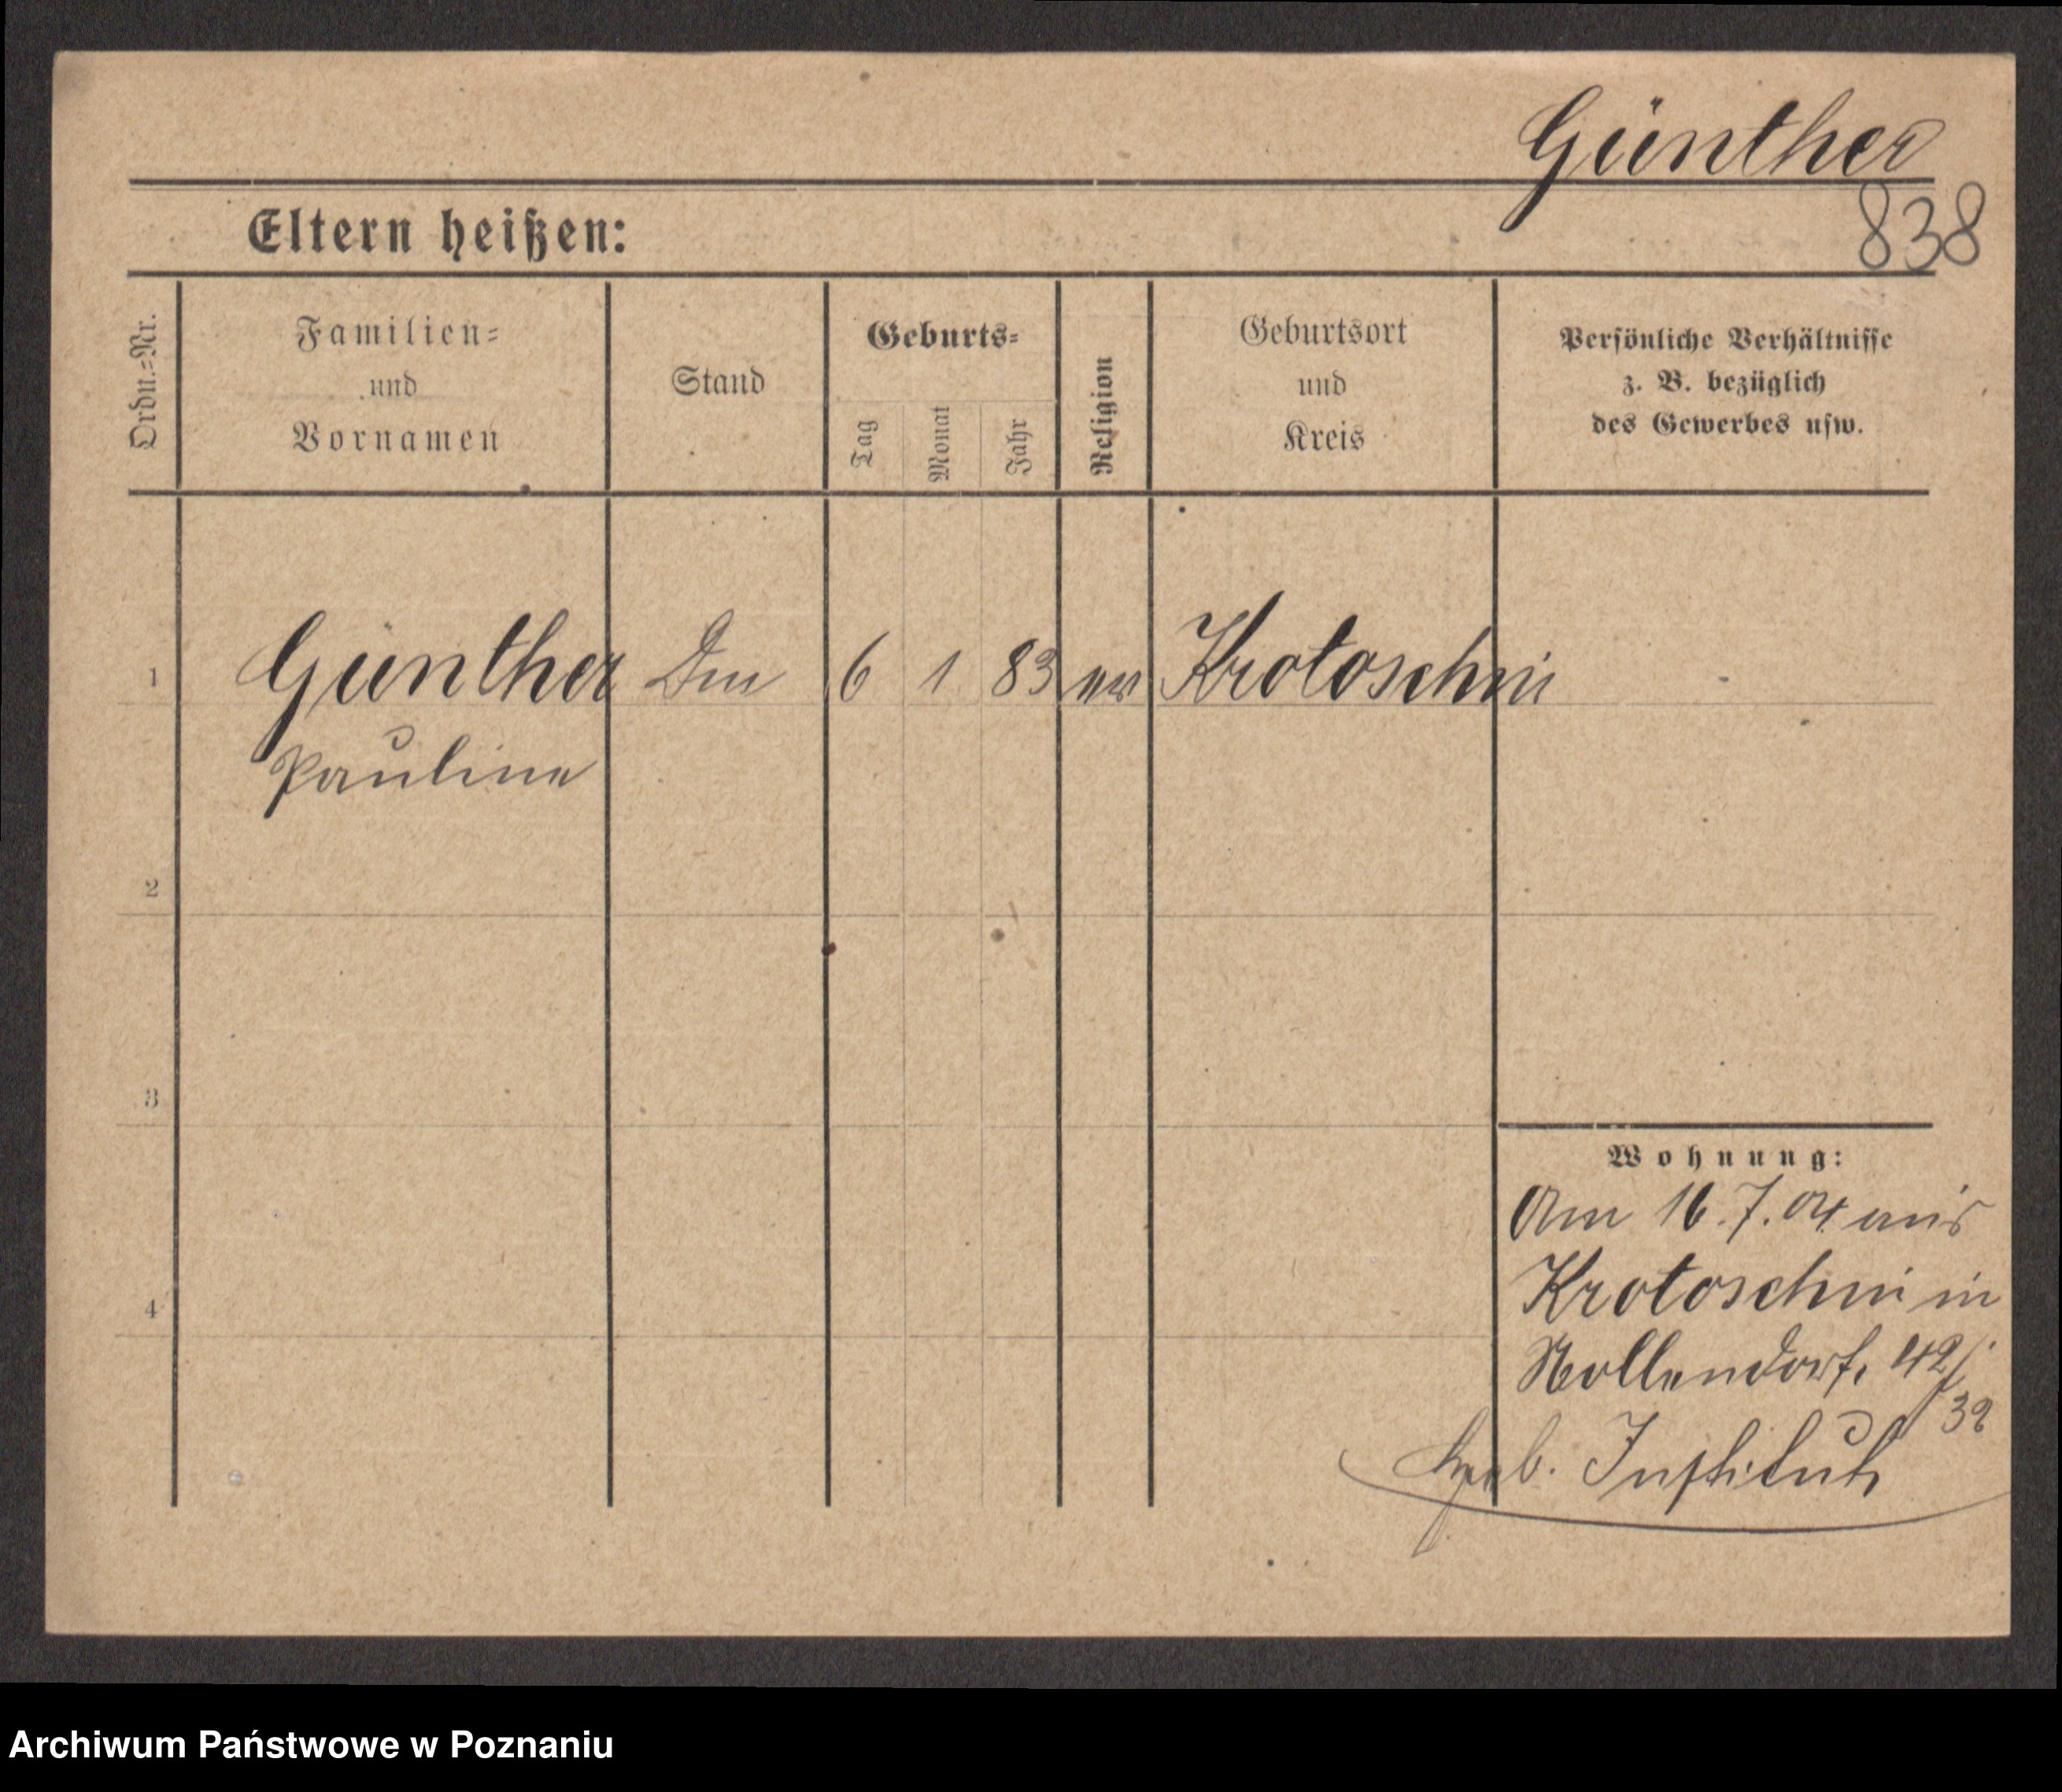 Günther
838
Eltern heißen:
Ordn.=Nr.
Familien=
und
Vornamen
Stand
Geburts=
Tag
Monat
Jahr
Religion
Geburtsort
und
Kreis
Persönliche Verhältnisse
z. B. bezüglich
des Gewerbes usw.
1 Günther 6 1 83 Krotoschin
Pauline
2
3
4
Wohnung:
Am 16.7.04 aus
Krotoschin in
Nollendorf. 42/
32
Institut
Archiwum Państwowe w Poznaniu